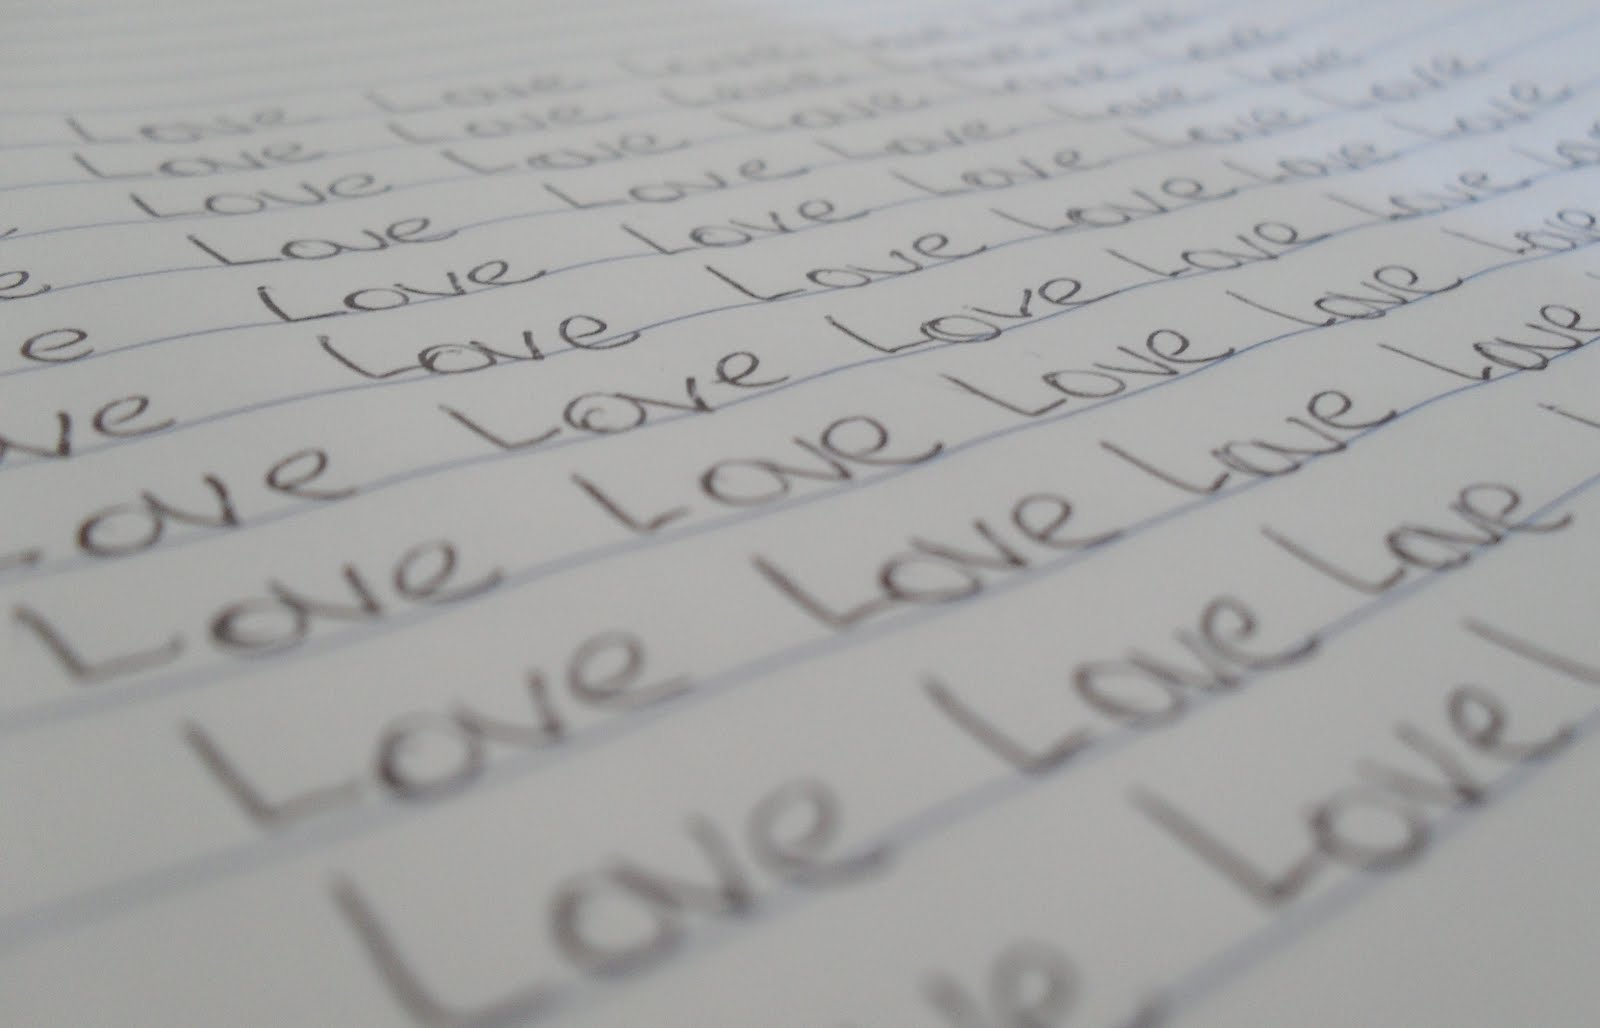 Love Love Love
Love Love Love Love
Love Love Love Love Love
e Love Love Love Love Love
e Love Love Love Love Love
ve Love Love Love Love Love
ove Love Love Love Love Lo
Love Love Love Love Love
Love Love Love Love
Love Love Love L
ve Love L